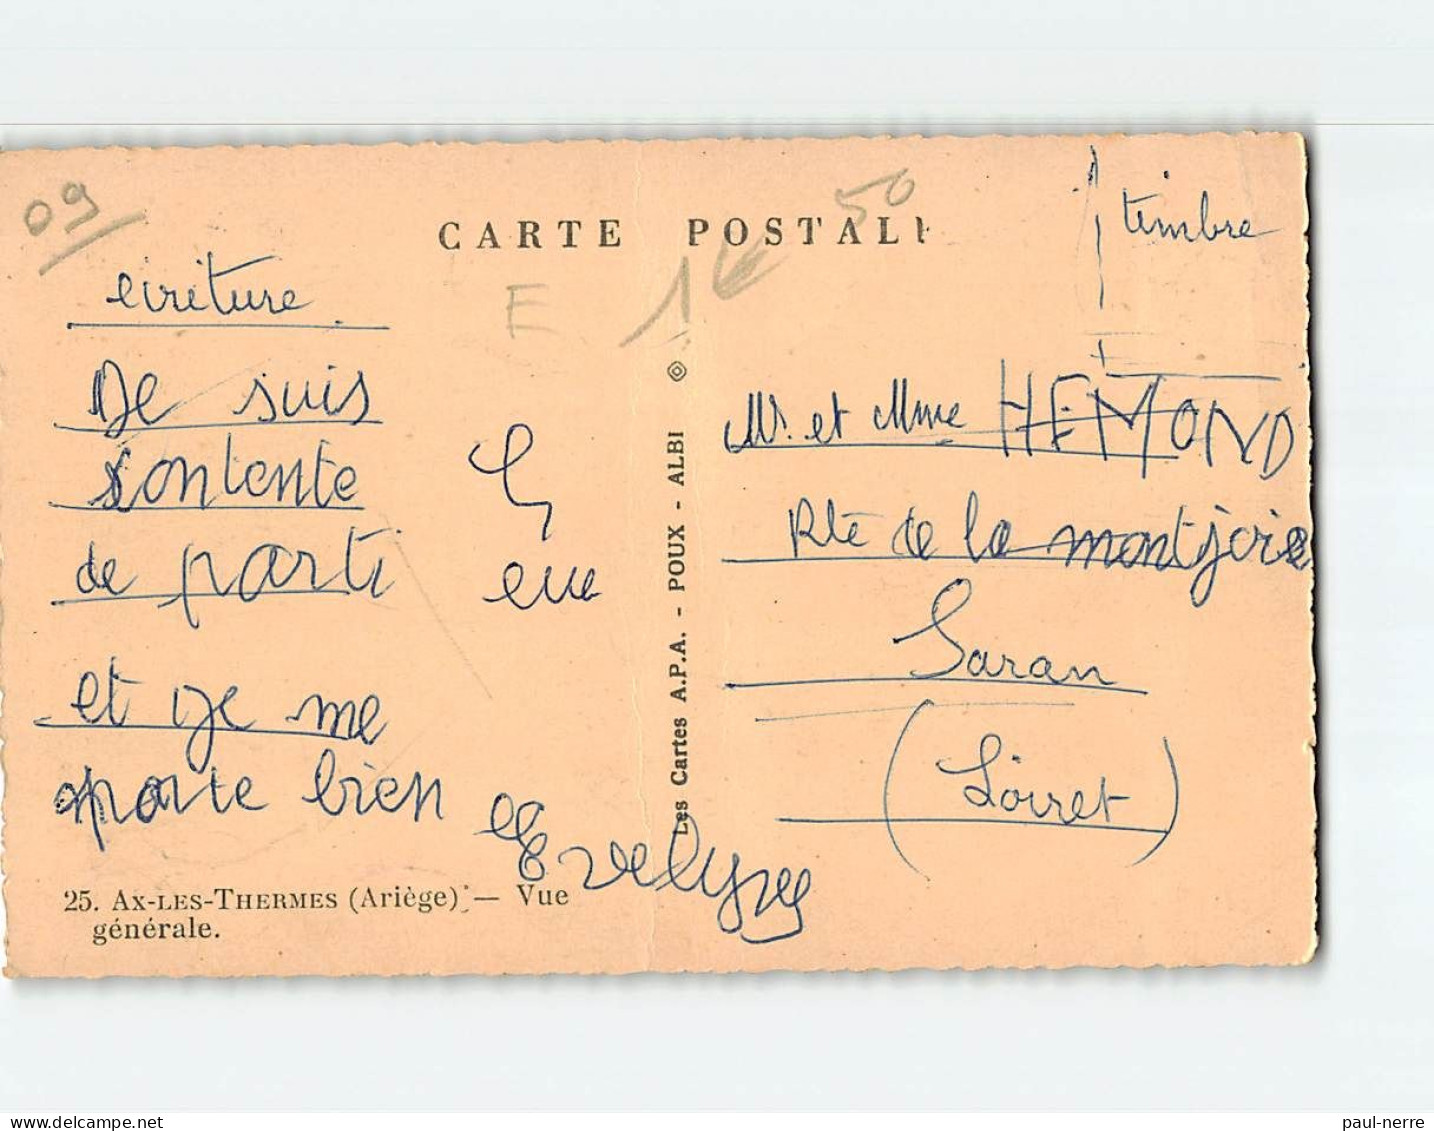 09
50
CARTE POSTALE
timbre
écriture
E
1
Je suis
contente
de parti
et je me
porte bien
eve
Evelyne
25. AX-LES-THERMES (Ariège) — Vue
générale.
Les Cartes A.P.A. - POUX - ALBI
Mr. et Mme HEMOND
Rte de la montjoie
Saran
(Loiret)
paul-nerre